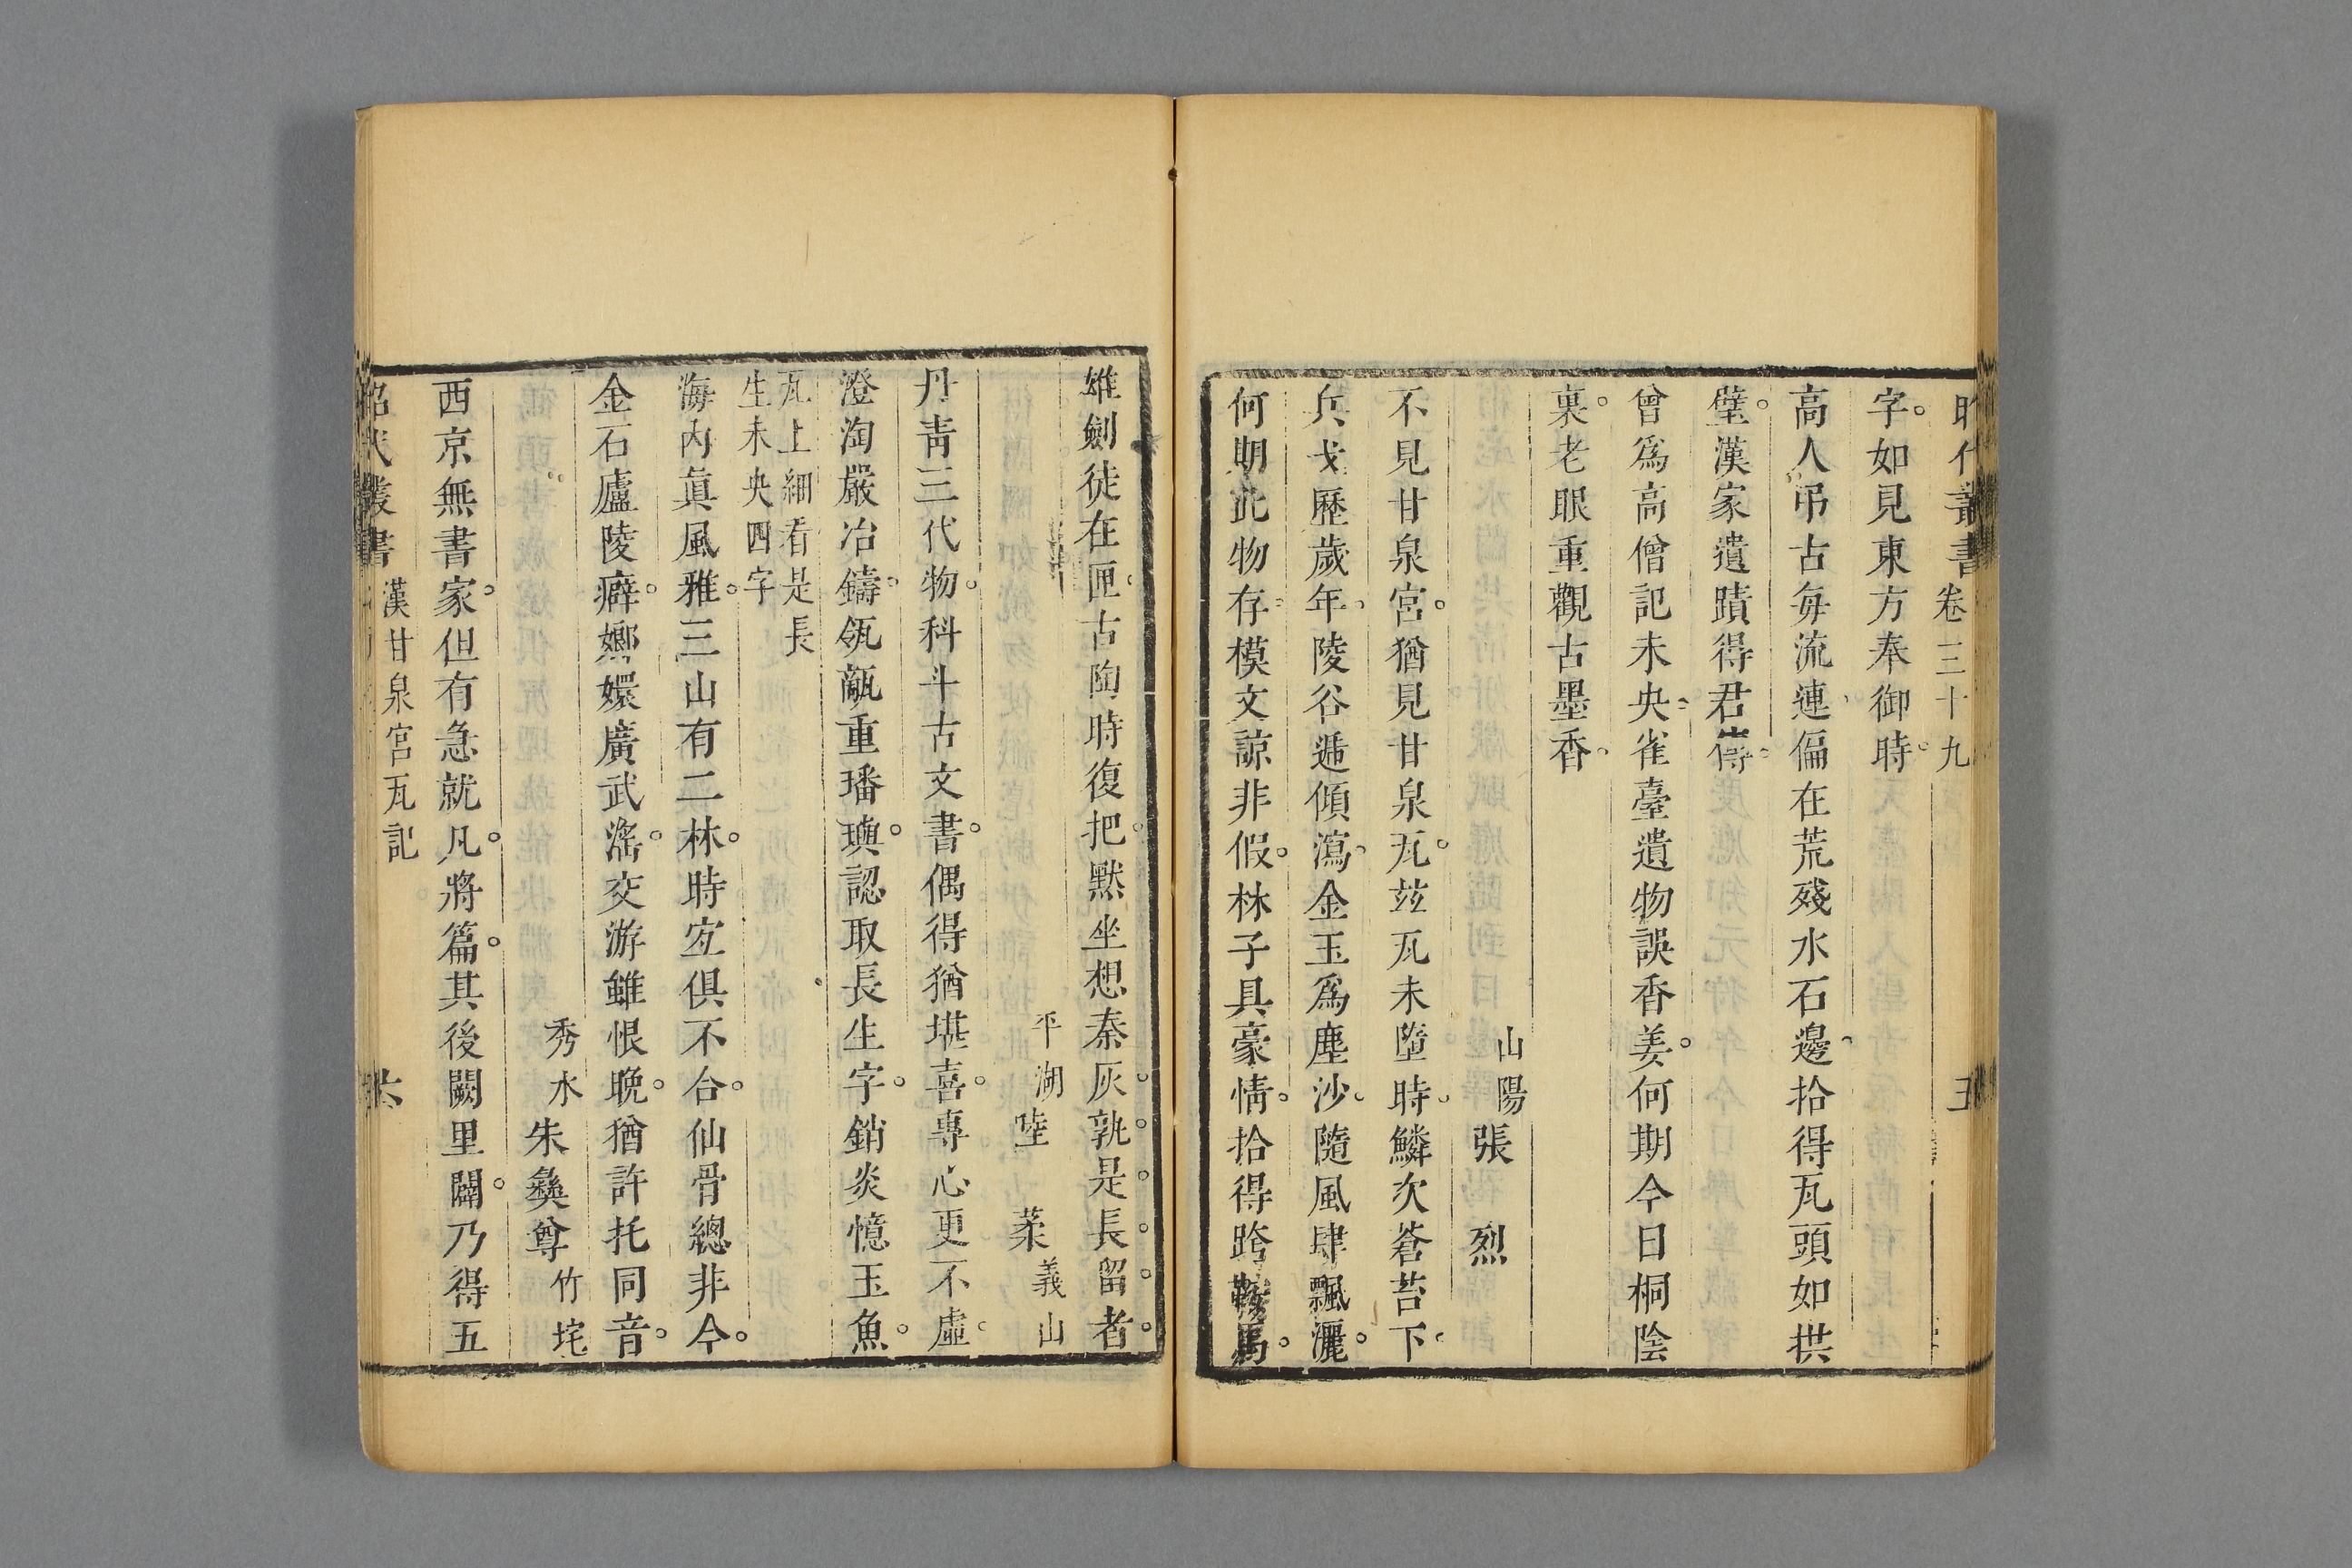 昭代叢書 卷三十九 五
字如見東方奉御時
高人弔古每流連偏在荒殘水石邊拾得瓦頭如拱
璧漢家遺蹟得君傳
曾為高僧記未央雀臺遺物誤香姜何期今日桐陰
裏老眼重觀古墨香
山陽張 烈
不見甘泉宮猶見甘泉瓦茲瓦未墮時鱗次蒼苔下
兵戈歷歲年陵谷遞傾瀉金玉為塵沙隨風肆飄灑
何期此物存模文諒非假林子具豪情拾得跨鞍馬
雄劍徒在匣古陶時復把默坐想秦灰孰是長留者
平湖陸 葇義山
丹靑三代物科斗古文書偶得猶堪喜專心更不虛
澄淘嚴冶鑄瓴甋重璠璵認取長生字銷炎憶玉魚
瓦上細看是長
生未央四字
海內眞風雅三山有二林時宐俱不合仙骨總非今
金石廬陵癖嫏嬛廣武滛交游雖恨晚猶許托同音
秀水朱彝尊竹垞
西京無書家但有急就凡將篇其後闕里闢乃得五
昭代叢書 漢甘泉宮瓦記 六